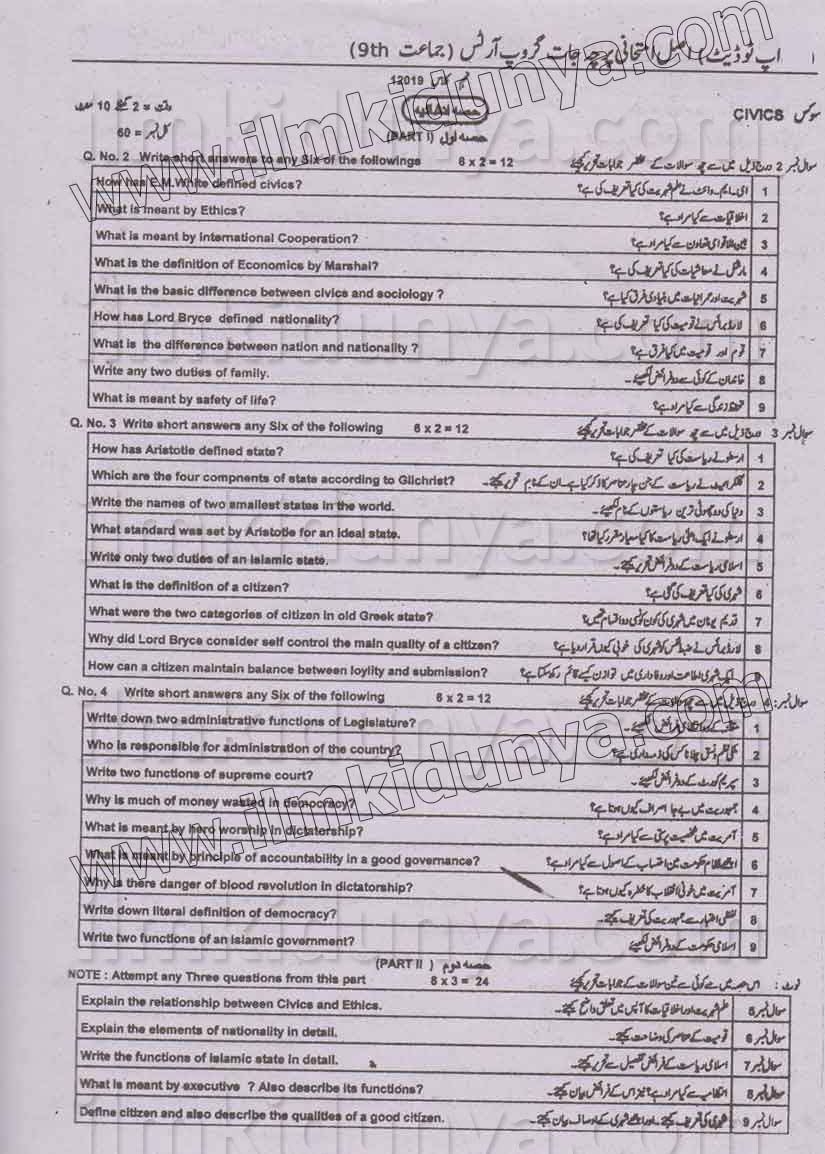 اپ ٹو ڈیٹ ) اصل امتحانی پرچہ جات گروپ آرٹس ( جماعت 9th)
12019
CIVICS سوکس
وقت = 2 گھنٹے 10 منٹ
حصہ انشائیہ
کل نمبر = 60
(PART I) حصہ اول
Q. No. 2 Write short answers to any Six of the followings 6 x 2 = 12 سوال نمبر 2 درج ذیل میں سے چھ سوالات کے مختصر جوابات تحریر کیجئے
How has E.M.White defined civics? ای۔ایم۔وائٹ نے علم شہریت کی کیا تعریف کی ہے؟ 1
What is meant by Ethics? اخلاقیات سے کیا مراد ہے؟ 2
What is meant by International Cooperation? بین الاقوامی تعاون سے کیا مراد ہے؟ 3
What is the definition of Economics by Marshal? مارشل نے معاشیات کی کیا تعریف کی ہے؟ 4
What is the basic difference between civics and sociology ? شہریت اور عمرانیات میں بنیادی فرق کیا ہے؟ 5
How has Lord Bryce defined nationality? لارڈ برائس نے قومیت کی کیا تعریف کی ہے؟ 6
What is the difference between nation and nationality ? قوم اور قومیت میں کیا فرق ہے؟ 7
Write any two duties of family. خاندان کے کوئی سے دو فرائض لکھیئے۔ 8
What is meant by safety of life? تحفظ زندگی سے کیا مراد ہے؟ 9
Q. No. 3 Write short answers any Six of the following 6 x 2 = 12 سوال نمبر 3 درج ذیل میں سے چھ سوالات کے مختصر جوابات تحریر کیجئے
How has Aristotle defined state? ارسطو نے ریاست کی کیا تعریف کی ہے؟ 1
Which are the four compnents of state according to Gilchrist? گلکرائسٹ نے ریاست کے جن چار عناصر کا ذکر کیا ہے۔ان کے نام تحریر کیجئے۔ 2
Write the names of two smallest states in the world. دنیا کی دو چھوٹی ترین ریاستوں کے نام لکھیئے۔ 3
What standard was set by Aristotle for an ideal state. ارسطو نے ایک مثالی ریاست کا کیا معیار مقرر کیا تھا؟ 4
Write only two duties of an Islamic state. اسلامی ریاست کے دو فرائض تحریر کیجئے۔ 5
What is the definition of a citizen? شہری کی کیا تعریف کی گئی ہے؟ 6
What were the two categories of citizen in old Greek state? قدیم یونان میں شہری کی کون کونسی دو اقسام تھیں؟ 7
Why did Lord Bryce consider self control the main quality of a citizen? لارڈ برائس نے ضبط نفس کو شہری کی خوبی کیوں قرار دیا ہے؟ 8
How can a citizen maintain balance between loylity and submission? ایک شہری اطاعت اور وفاداری میں توازن کیسے قائم رکھ سکتا ہے؟ 9
Q. No. 4 Write short answers any Six of the following 6 x 2 = 12 سوال نمبر: 4 درج ذیل میں سے چھ سوالات کے مختصر جوابات تحریر کیجئے
Write down two administrative functions of Legislature? مقننہ کے دو انتظامی فرائض لکھیئے۔ 1
Who is responsible for administration of the country? ملکی نظم و نسق چلانا کس کی ذمہ داری ہے؟ 2
Write two functions of supreme court? سپریم کورٹ کے دو فرائض لکھیئے۔ 3
Why is much of money wasted in democracy? جمہوریت میں بے جا اصراف کیوں ہوتا ہے؟ 4
What is meant by hero worship in dictatership? آمریت میں شخصیت پرستی سے کیا مراد ہے؟ 5
What is meant by principle of accountability in a good governance? اچھے نظام حکومت میں احتساب کے اصول سے کیا مراد ہے؟ 6
Why is there danger of blood revolution in dictatorship? آمریت میں خونی انقلاب کا خطرہ کیوں ہوتا ہے؟ 7
Write down literal definition of democracy? لفظی اعتبار سے جمہوریت کی تعریف کیجئے۔ 8
Write two functions of an Islamic government? اسلامی حکومت کے دو فرائض لکھیئے 9
(PART II ) حصہ دوم
NOTE : Attempt any Three questions from this part 8 x 3 = 24 نوٹ : اس حصہ میں سے کوئی سے تین سوالات کے جوابات تحریر کیجئے
Explain the relationship between Civics and Ethics. علم شہریت اور اخلاقیات کا آپس میں تعلق واضح کیجئے۔ سوال نمبر 5
Explain the elements of nationality in detail. قومیت کے عناصر کی وضاحت کیجئے۔ سوال نمبر 6
Write the functions of Islamic state in detail. اسلامی ریاست کے فرائض تفصیل سے تحریر کیجئے۔ سوال نمبر 7
What is meant by executive ? Also describe its functions? انتظامیہ سے کیا مراد ہے؟ نیز اس کے فرائض بیان کیجئے۔ سوال نمبر 8
Define citizen and also describe the qualities of a good citizen. شہری کی تعریف کیجئے۔اور اچھے شہری کے اوصاف بیان کیجئے۔ سوال نمبر 9
www.ilmkidunya.com
www.ilmkidunya.com
ilmkidunya.com
ilmkidunya.com
ilmkidunya.com
ilmkidunya.com
ilmkidunya.com
ilmkidunya.com